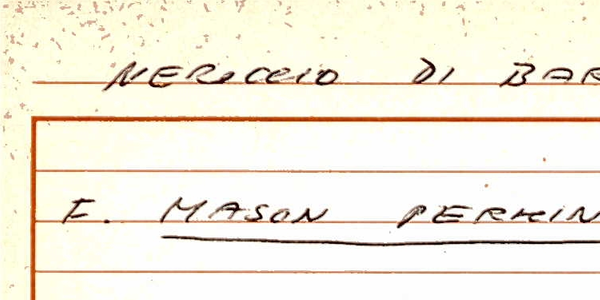 NERICCIO DI BAR
F. MASON PERKIN